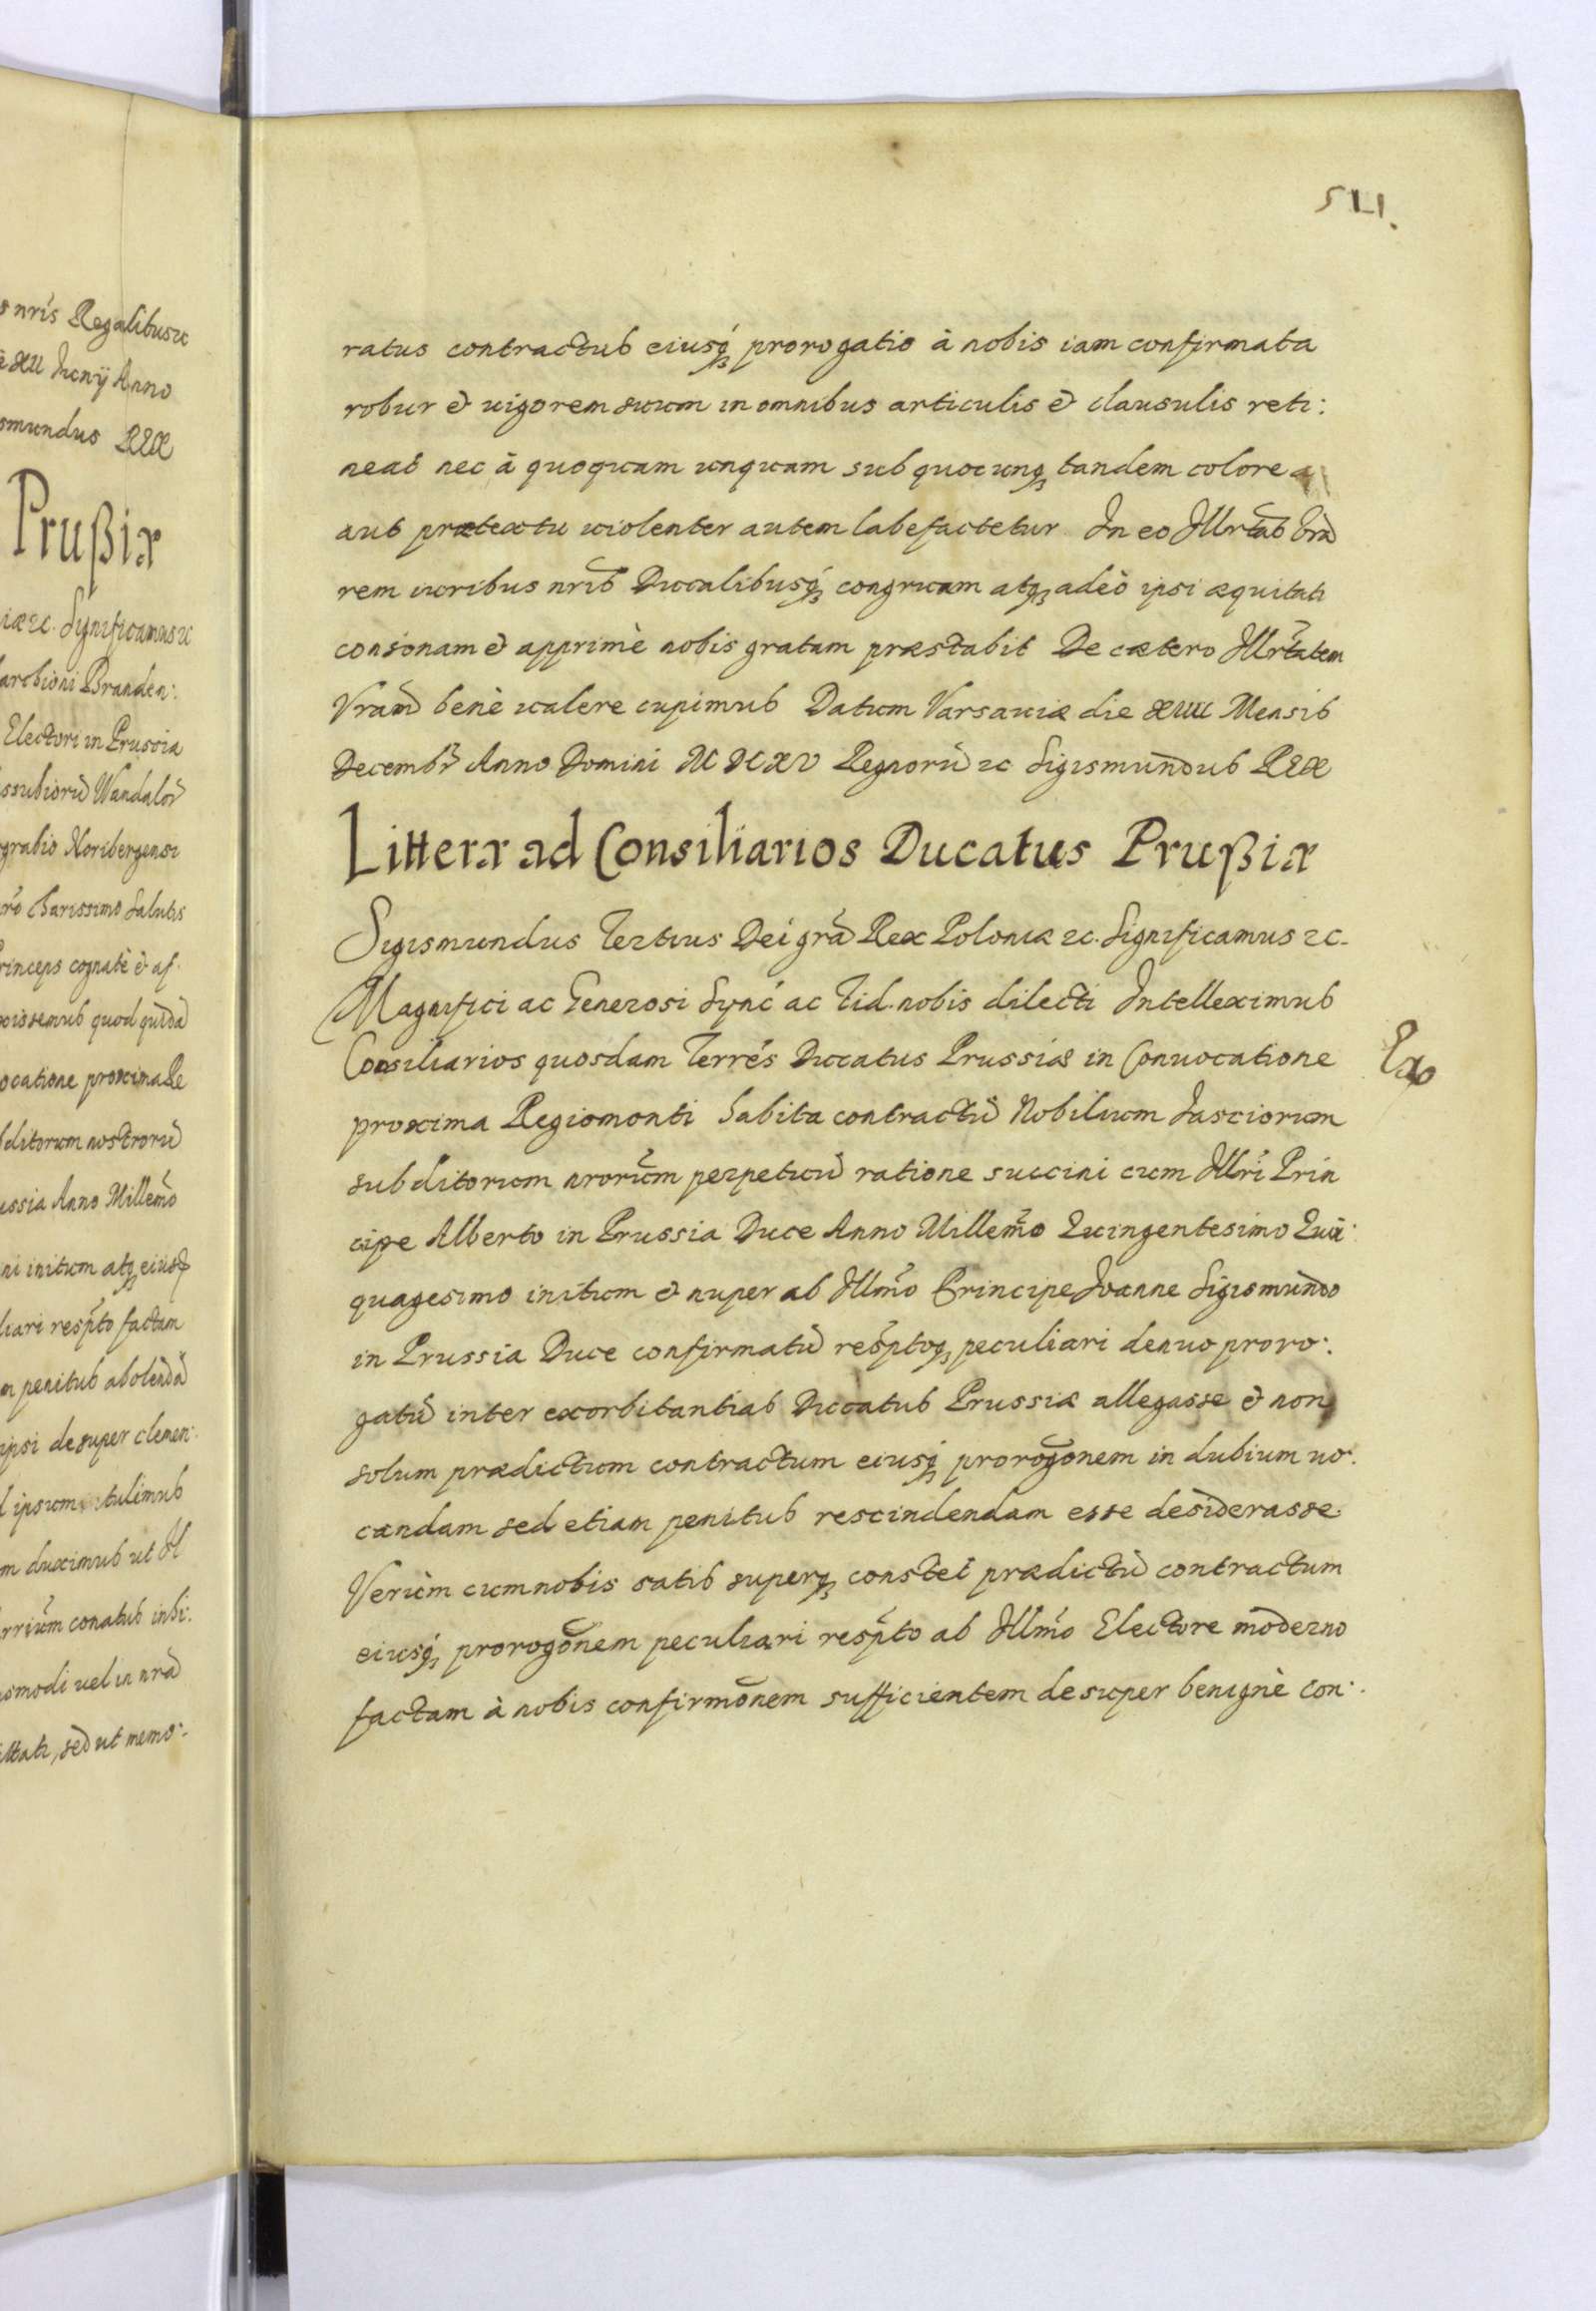 s nrís Regalibus ꝛc
Junÿ Anno
smundus REX
Prußiæ
iæ ꝛc. Significamus ꝛc
archioni Branden:
Electori in Prussia
ssubiorũ Wandalor̃
grabio Noribergensi
charissimo salutẽ
rinceps cognatè & af.
oissemus quod quidã
ocatione proxima Re
bditorum nostrorũ
ussia Anno Millem̃o
ni initum atq́ eiusq́
liari resp̃to factam
m penitus abolendã
ipsi desuper clemen:
ipsum tulimus
m duximus ut Jl
rrium̃ conatus inhi:
usmodi uel in nr̃a
ittati, sed ut memo:
511.
ratus contractus eiusq́ prorogatio à nobis iam confirmata
robur & uigorem suum in omnibus articulis & clausulis reti:
neat nec à quoquam unquam sub quocunq tandem colore
aut prætextu uiolenter autem labefactetur. In eo Jllrtas̃ Vrã
rem iuribus nr̃is Ducalibusq́ congruam atq adeò ipsi æquitati
consonam & apprimè nobis gratam præstabit De cætero Jllrt̃atem
Vram̃ benè ualere cupimus Datum Varsauiæ die XVIII Mensis
Decembr̃ Anno Domini MDCXV Regnorũ ꝛc Sigismundus REX
Litteræ ad Consiliarios Ducatus Prußiæ
Sigismundus Tertius Dei grã Rex Poloniæ ꝛc. Significamus ꝛc.
Magnifici ac Generosi Sync̃ ac fid. nobis dilecti Intelleximus
Consiliarios quosdam Terrés Ducatus Prussiæ in Conuocatione
proxima Regiomonti habita contractũ Nobilium Jasciorum
subditorum nrorum̃ perpetuũ ratione succini cum Jllrĩ Prin
cipe Alberto in Prussia Duce Anno Millem̃o Quingentesimo Quã:
quagesimo initum & nuper ab Jllm̃o Principe Joanne Sigismundo
in Prussia Duce confirmatũ resp̃toq peculiari denuo proro:
gatũ inter exorbitantias Ducatus Prussiæ allegasse & non
solum prædictum contractum eiusq́ prorogõnem in dubium uo:
candam sed etiam penitus rescindendam esse desiderasse.
Verùm cum nobis satis superq constet prædictũ contractum
eiusq́ prorogõnem peculiari resp̃to ab Jllm̃o Electore moderno
factam à nobis confirmõnem sufficientem desuper benignè con: